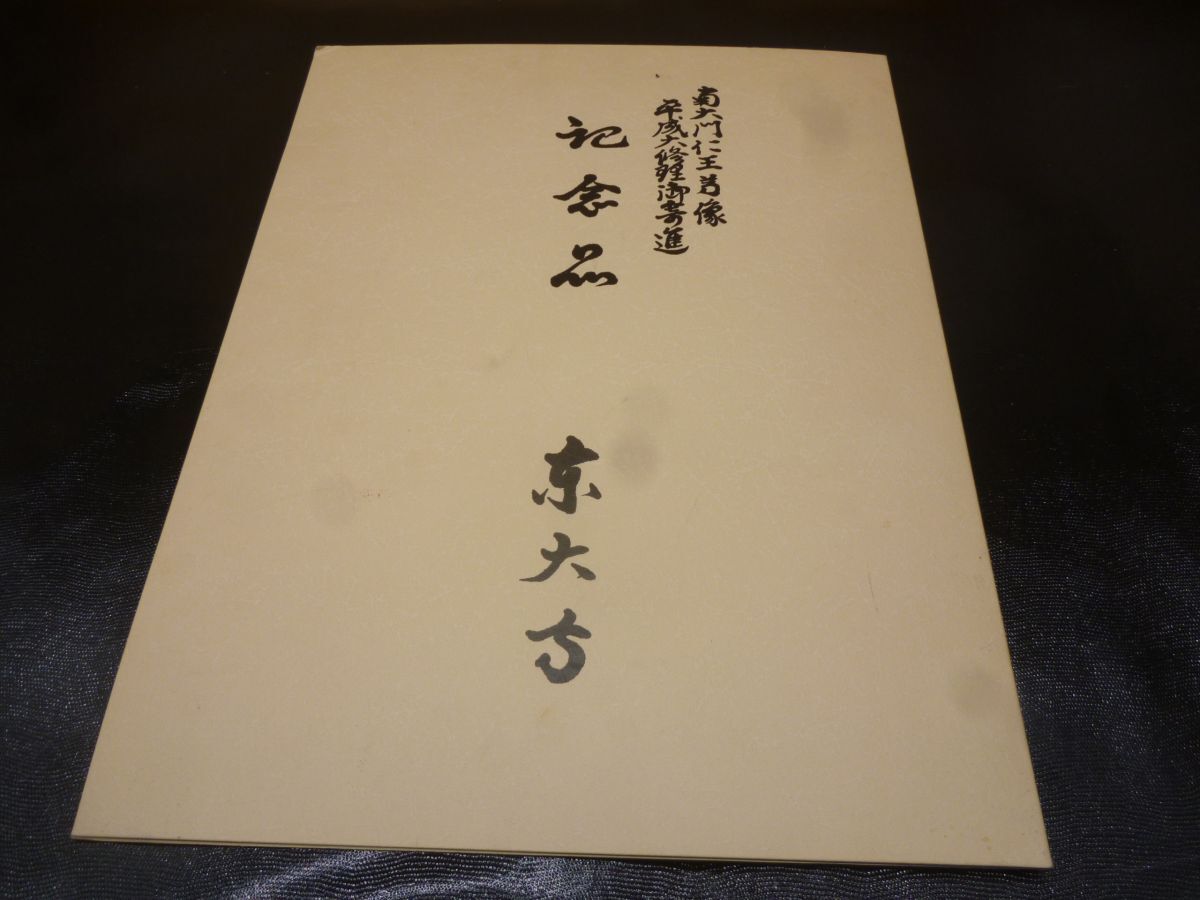 南大門仁王尊像
平成大修理御寄進
記念品
東大寺